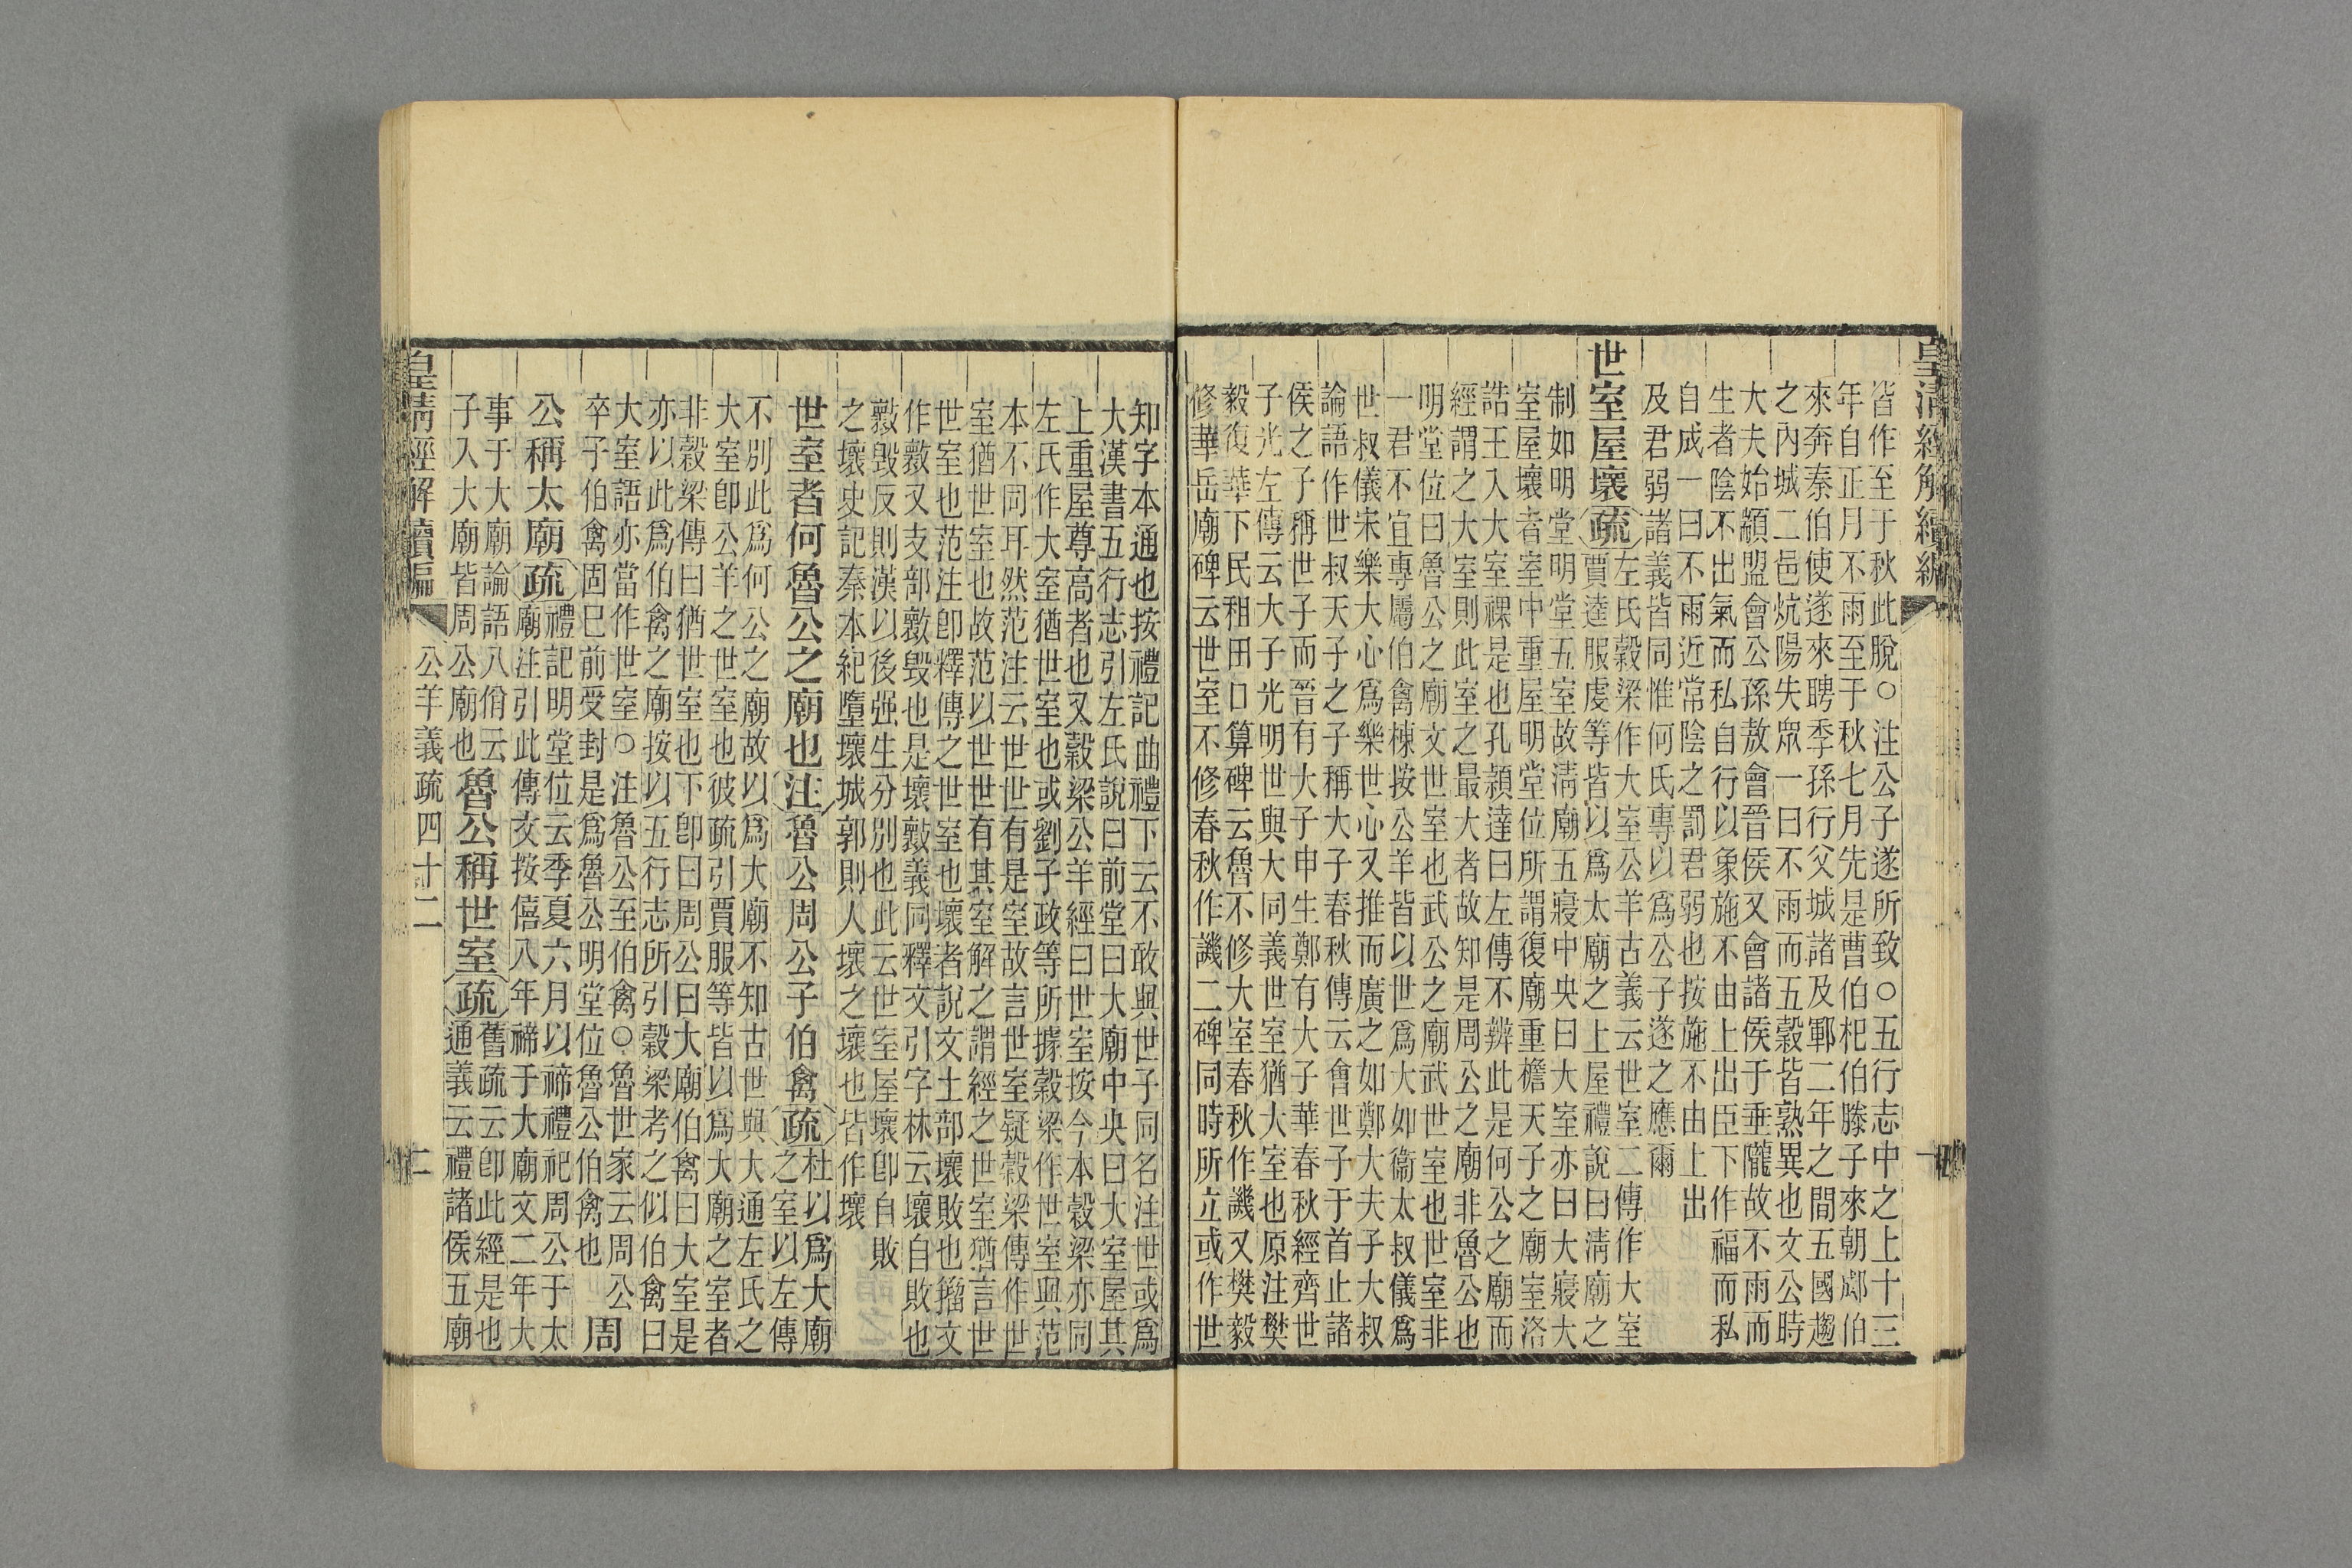 皇清經解續編
皆作至于秋此脫○注公子遂所致○五行志中之上十三
年自正月不雨至于秋七月先是曹伯杞伯滕子來朝郕伯
來奔秦伯使遂來聘季孫行父城諸及鄆二年之間五國趨
之內城二邑炕陽失眾一曰不雨而五穀皆熟異也文公時
大夫始顓盟會公孫敖會晉侯又會諸侯于垂隴故不雨而
生者陰不出氣而私自行以象施不由上出臣下作福而私
自成一曰不雨近常陰之罰君弱也按施不由上出
及君弱諸義皆同惟何氏專以爲公子遂之應爾
世室屋壞疏左氏穀梁作大室公羊古義云世室二傳作大室
賈逵服虔等皆以爲太廟之上屋禮說曰淸廟之
制如明堂明堂五室故淸廟五寢中央曰大室亦曰大寢大
室屋壞者室中重屋明堂位所謂復廟重檐天子之廟室洛
誥王入大室祼是也孔頴達曰左傳不辨此是何公之廟而
經謂之大室則此室之最大者故知是周公之廟非魯公也
明堂位曰魯公之廟文世室也武公之廟武世室也世室非
一君不宜專屬伯禽棟按公羊皆以世爲大如衞太叔儀爲
世叔儀宋樂大心爲樂世心又推而廣之如鄭大夫子大叔
論語作世叔天子之子稱大子春秋傳云會世子于首止諸
侯之子稱世子而晉有大子申生鄭有大子華春秋經齊世
子光左傳云大子光明世與大同義世室猶大室也原注樊
毅復華下民租田口算碑云魯不修大室春秋作譏又樊毅
修華岳廟碑云世室不修春秋作譏二碑同時所立或作世
知字本通也按禮記曲禮下云不敢與世子同名注世或爲
大漢書五行志引左氏說曰前堂曰大廟中央曰大室屋其
上重屋尊高者也又穀梁公羊經曰世室按今本穀梁亦同
左氏作大室猶世室也或劉子政等所據穀梁作世室與范
本不同耳然范注云世世有是室故言世室疑穀梁傳作世
室猶世室也故范以世世有其室解之謂經之世室猶言世
世室也范注卽釋傳之世室也壞者說文土部壞敗也籀文
作㱮又攴部㱮毀也是壞㱮義同釋文引字林云壞自敗也
㱮毀反則漢以後强生分別也此云世室屋壞卽自敗
之壞史記秦本紀墮壞城郭則人壞之壞也皆作壞
世室者何魯公之廟也注魯公周公子伯禽疏杜以爲大廟
之室以左傳
不別此爲何公之廟故以爲大廟不知古世與大通左氏之
大室卽公羊之世室也彼疏引賈服等皆以爲大廟之室者
非穀梁傳曰猶世室也下卽曰周公曰大廟伯禽曰大室是
亦以此爲伯禽之廟按以五行志所引穀梁考之似伯禽曰
大室語亦當作世室○注魯公至伯禽○魯世家云周公
卒子伯禽固已前受封是爲魯公明堂位魯公伯禽也周
公稱太廟疏禮記明堂位云季夏六月以禘禮祀周公于太
廟注引此傳文按僖八年禘于大廟文二年大
事于大廟論語八佾云
子入大廟皆周公廟也魯公稱世室疏舊疏云卽此經是也
通義云禮諸侯五廟
皇清經解續編 公羊義疏四十二 二